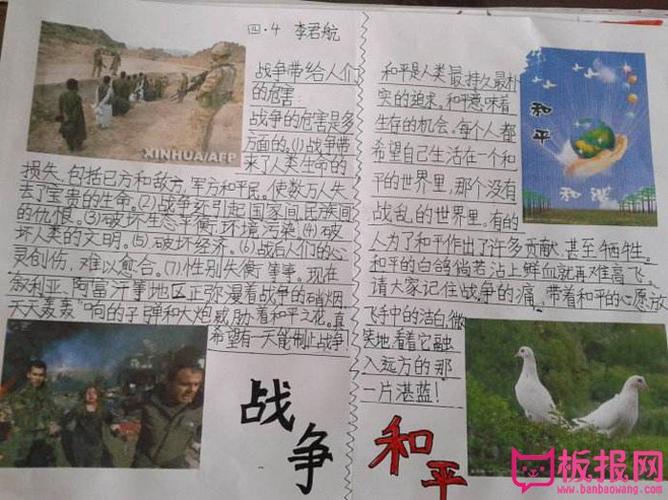 四·4 李君航
XINHUA/AFP
战争带给人们
的危害:
战争的危害是多
方面的,(1)战争带
来了人类生命的
损失,包括己方和敌方,军方和平民。使数万人失
去了宝贵的生命。(2)战争终引起国家间,民族间
的仇恨。(3)破坏生态平衡,环境污染(4)破
坏人类的文明。(5)破坏经济。(6)战后人们的心
灵创伤,难以愈合。(7)性别失衡等事。现在
叙利亚、阿富汗等地区正弥漫着战争的硝烟,
天天"轰轰"响的子弹和大炮威胁着和平之花。真
希望有一天能制止战争!
战争
和平是人类最持久最朴
实的追求。和平意味着
生存的机会。每个人都
希望自己生活在一个和
平的世界里,那个没有
战乱的世界里。有的
人为了和平作出了许多贡献,甚至牺牲。
和平的白鸽倘若沾上鲜血就再难高飞。
请大家记住战争的痛,带着和平的心愿放
飞手中的洁白,微
笑地看着它融
入远方的那
一片湛蓝!
和平
和平
和谐
板报网
www.banbaowang.com